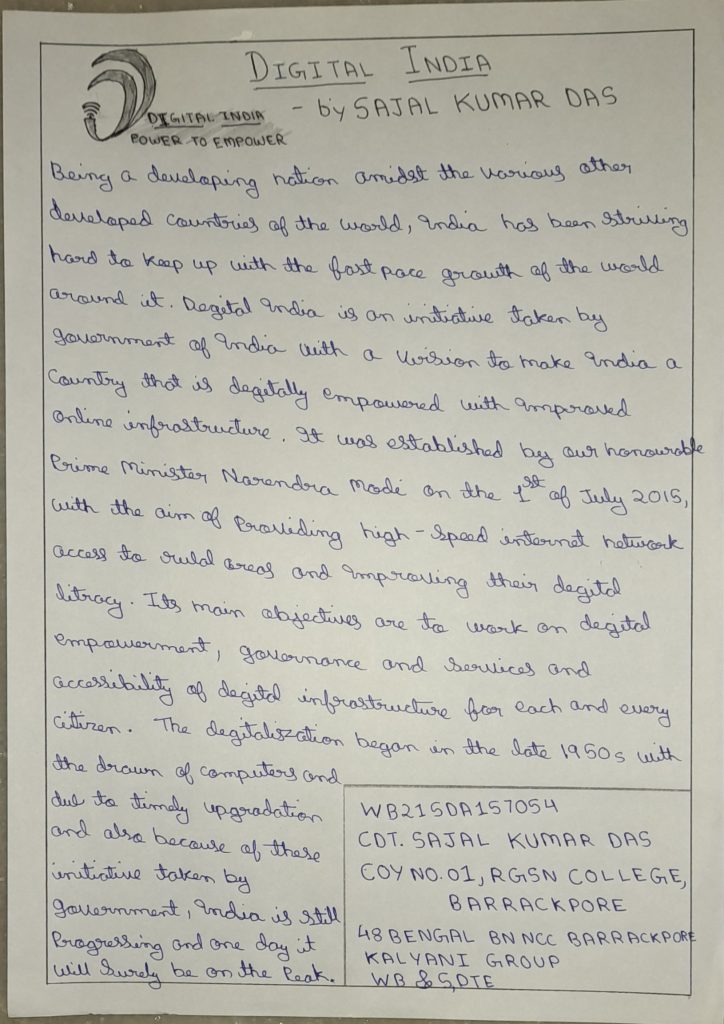 DIGITAL INDIA
- by SAJAL KUMAR DAS
DIGITAL INDIA
POWER TO EMPOWER
Being a developing nation amidst the various other
developed countries of the world, India has been striving
hard to keep up with the fast pace growth of the world
around it. Degital India is an initiative taken by
government of India with a vision to make India a
Country that is degitally empowered with improved
online infrastructure. It was established by our honourable
Prime Minister Narendra Modi on the 1st of July 2015,
with the aim of Providing high-speed internet network
access to rural areas and improving their degital
litracy. Its main objectives are to work on degital
empowerment, governance and services and
accessibility of degital infrastructure for each and every
citizen. The degitalization began in the late 1950s with
the drawn of computers and
due to timely upgradation
and also because of these
initiative taken by
government, India is still
Progressing and one day it
will Surely be on the Peak.
WB21SDA157054
CDT. SAJAL KUMAR DAS
COY NO. 01, RGSN COLLEGE,
BARRACKPORE
48 BENGAL BN NCC BARRACKPORE
KALYANI GROUP
WB & S, DTE